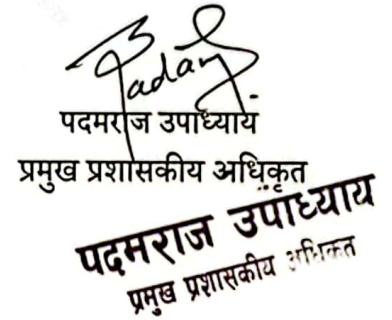 पदमराज उपाध्याय
प्रमुख प्रशासकीय अधिकृत
पदमराज उपाध्याय
प्रमुख प्रशासकीय अधिकृत